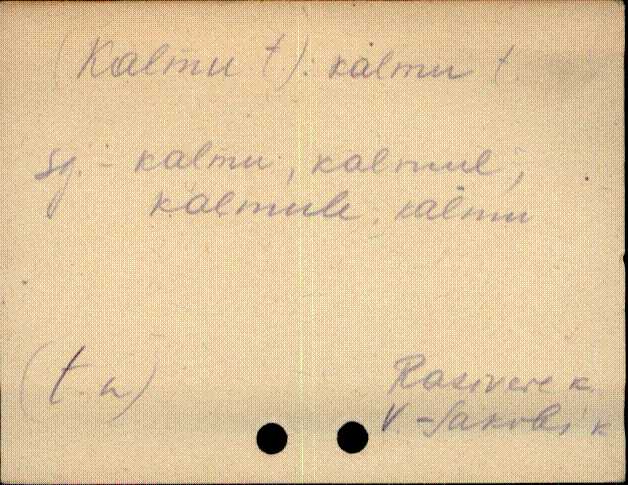 (Kalmu t.): kalmu t.
sg. - kalmu, kalmul,
kalmule, kalmu
(t. n)
Rasivere k.
V.-Jakobi k